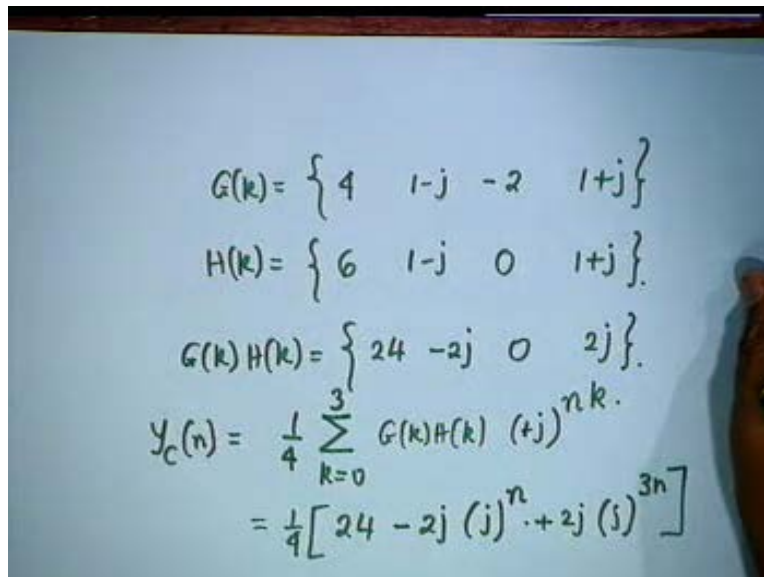 G(k) = { 4 1-j -2 1+j }
H(k) = { 6 1-j 0 1+j }.
G(k) H(k) = { 24 -2j 0 2j }.
y_c(n) = 1/4 ∑_{k=0}^{3} G(k)H(k) (+j)^{nk}.
= 1/4 [ 24 - 2j (j)^n + 2j (j)^{3n} ]